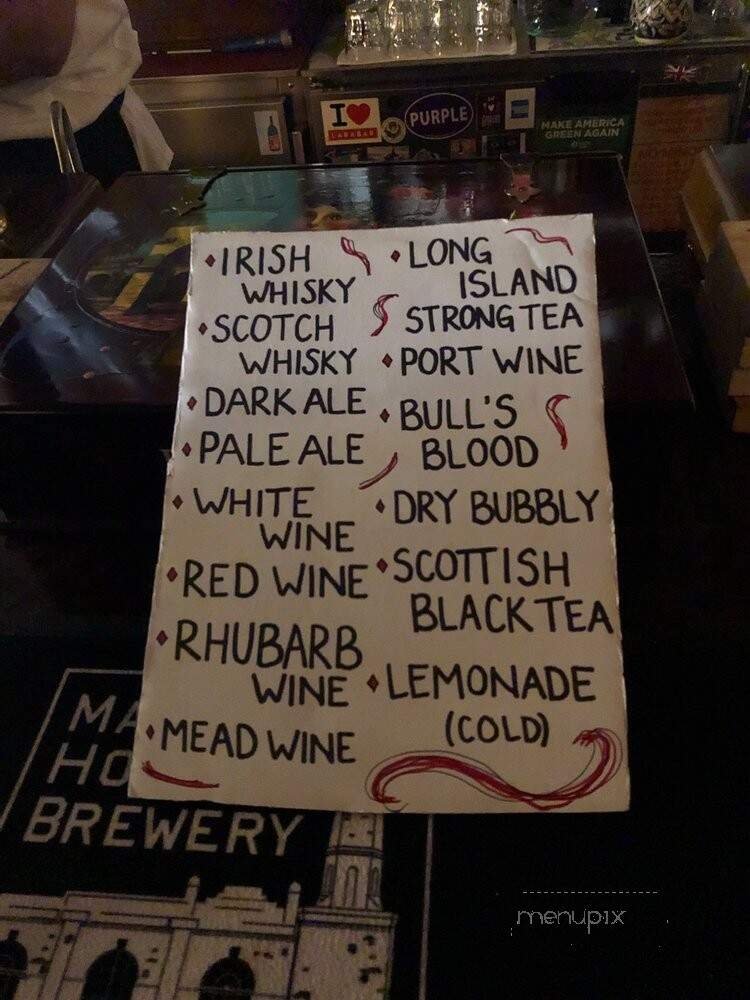 I
LARABAR
PURPLE
MAKE AMERICA
GREEN AGAIN
IRISH
WHISKY
SCOTCH
WHISKY
DARK ALE
PALE ALE
WHITE
WINE
RED WINE
RHUBARB
WINE
MEAD WINE
LONG
ISLAND
STRONG TEA
PORT WINE
BULL'S
BLOOD
DRY BUBBLY
SCOTTISH
BLACK TEA
LEMONADE
(COLD)
BREWERY
menupix